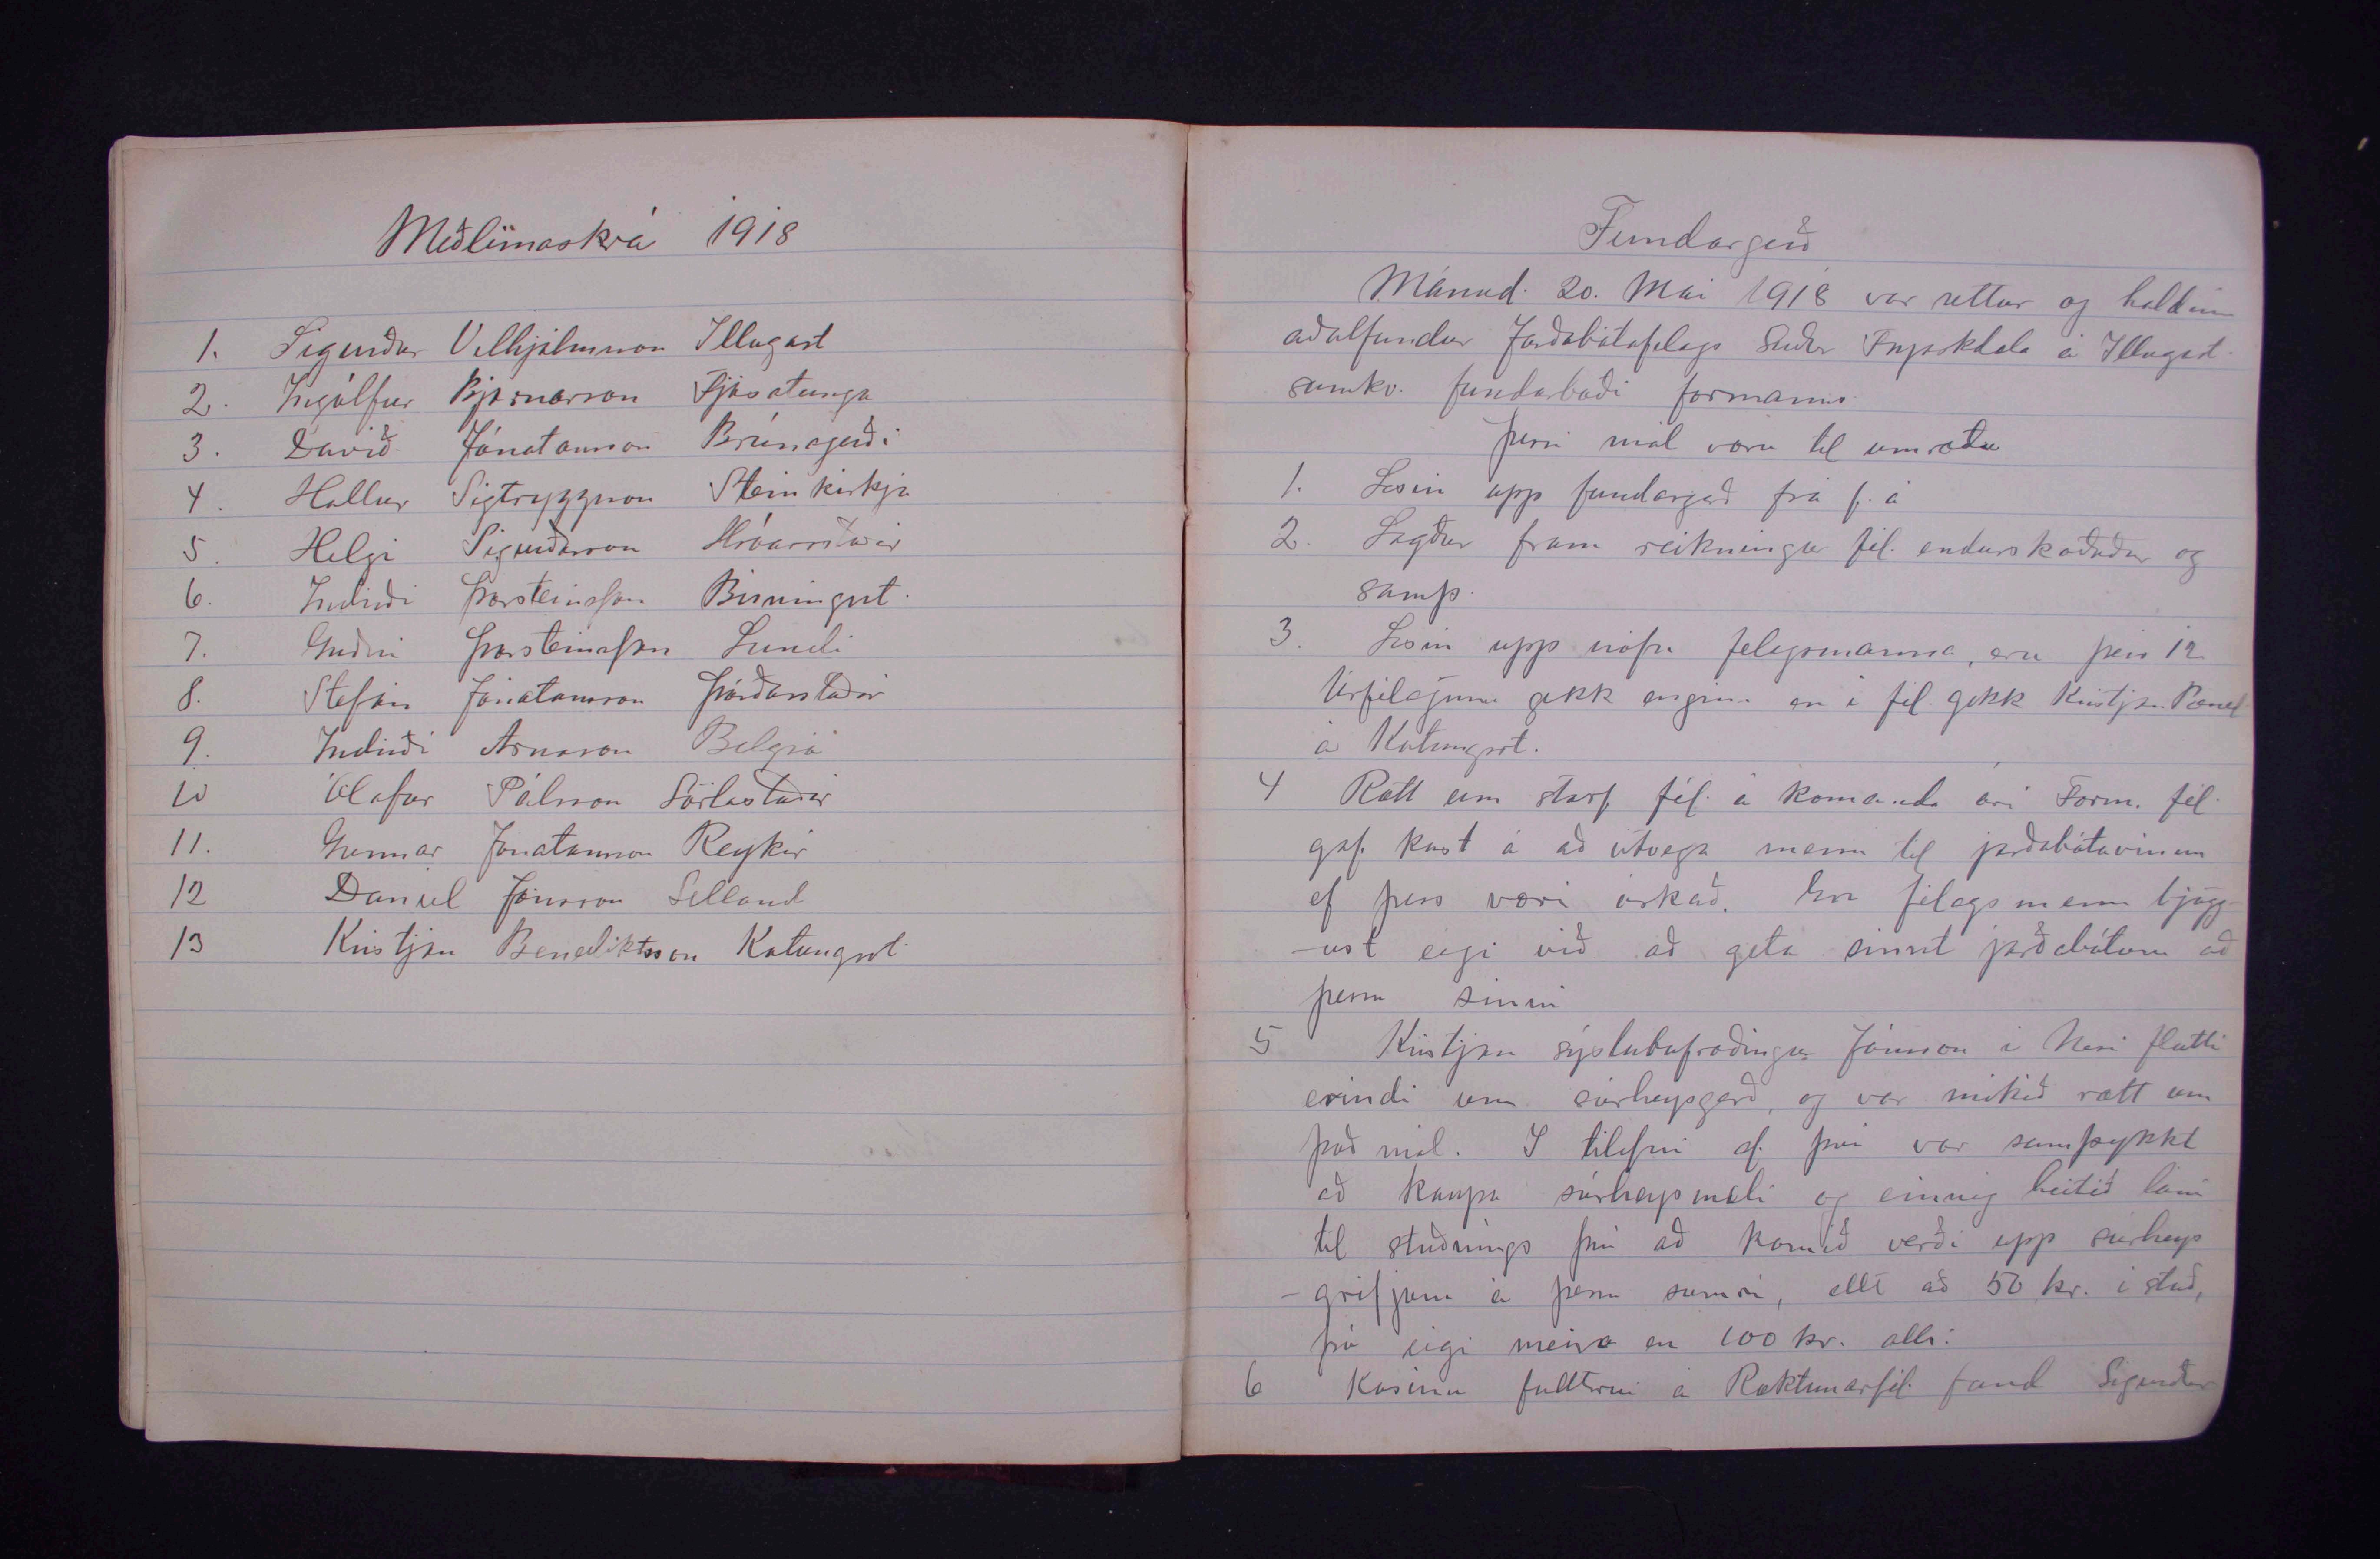 Meðlimaskrá 1918
1. Sigurður Vilhjálmsson Illugast
2. Ingólfur Bjarnarson Fjósatunga
3. Davíð Jónatansson Brúnagerði
4. Hallur Sigtryggsson Steinkirkja
5. Helgi Sigurðsson Hróarsstaðir
6. Indriði Þorsteinsson Birningsst.
7. Guðni Þorsteinsson Lundi
8. Stefán Jónatansson Þórðarstaðir
9. Indriði Árnason Belgsá
10 Ólafur Pálsson Sörlastaðir
11. Gunnar Jónatansson Reykir
12 Daníel Jónsson Selland
13 Kristján Benediktsson Kotungsst.
Fundargerð
Mánud. 20. Mai 1918 var settur og haldinn
aðalfundur Jarðabótafélags Suður Fnjóskdæla á Illugast.
samkv. fundarboði formanns.
Þessi mál voru til umræðu
1. Lesin upp fundargerð frá f. á
2. Lagður fram reikningur fél. endurskoðaður og
samþ.
3. Lesin upp nöfn félagsmanna, eru þeir 12
Úr félaginu gekk enginn en í fél. gekk Kristján Bened
á Kotungsst.
4 Rætt um starf fél. á komanda ári Form. fél.
gaf kost á að útvega menn til jarðabótavinnu
ef þess væri óskað. En félagsmenn bjugg-
-ust eigi við að geta sinnt jarðabótum að
þessu sinni
5 Kristján sýslubúfræðingur Jónsson í Nesi flutti
erindi um súrheysgerð, og var mikið rætt um
það mál. Í tilefni af því var samþykkt
að kaupa súrheysmæli og einnig heitið láni
til stuðnings því að komið verði upp súrheys
-gryfjum á þessu sumri, allt að 50 kr. í stað,
þó eigi meira en 100 kr. alls.
6 Kosinn fulltrúi á Ræktunarfél. fund Sigurður